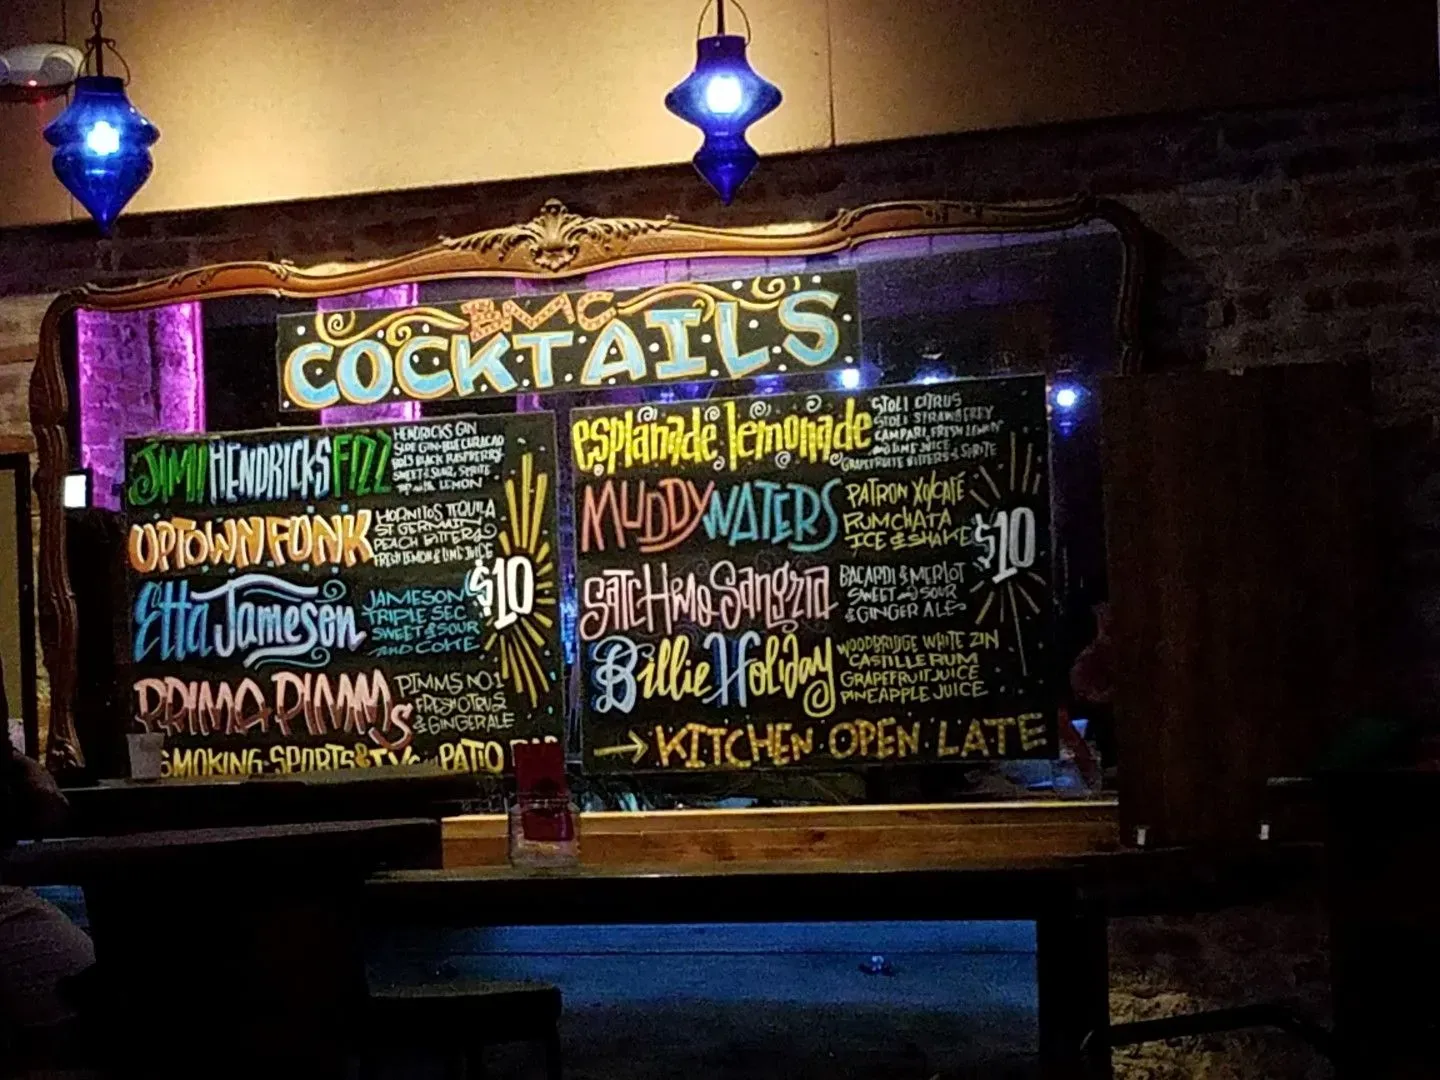 BMC
COCKTAILS
JIMI HENDRICKS FIZZ
HENDRICKS GIN
SLOE GIN BLUE CURACAO
BOLS BLACK RASPBERRY
SWEET & SOUR, SPRITE
LEMON
UPTOWN FONK
HORNITOS TEQUILA
ST GERMAIN
PEACH BITTERS
FRESH LEMON & LIME JUICE
Etta Jameson
JAMESON
TRIPLE SEC
SWEET & SOUR
AND COKE
$10
PRIMA PIMMS
PIMMS NO.1
FRESH CITRUS
& GINGER ALE
SMOKING SPORTS & TVs PATIO BAR
esplanade lemonade
STOLI CITRUS
STOLI STRAWBERRY
CAMPARI, FRESH LEMON
AND LIME JUICE
GRAPEFRUIT BITTERS & SPRITE
MUDDY WATERS
PATRON XO CAFE
RUMCHATA
ICE & SHAKE
$10
SATCHMO SANGRIA
BACARDI & MERLOT
SWEET AND SOUR
& GINGER ALE
Billie Holiday
WOODBRIDGE WHITE ZIN
CASTILLE RUM
GRAPEFRUIT JUICE
PINEAPPLE JUICE
→ KITCHEN OPEN LATE